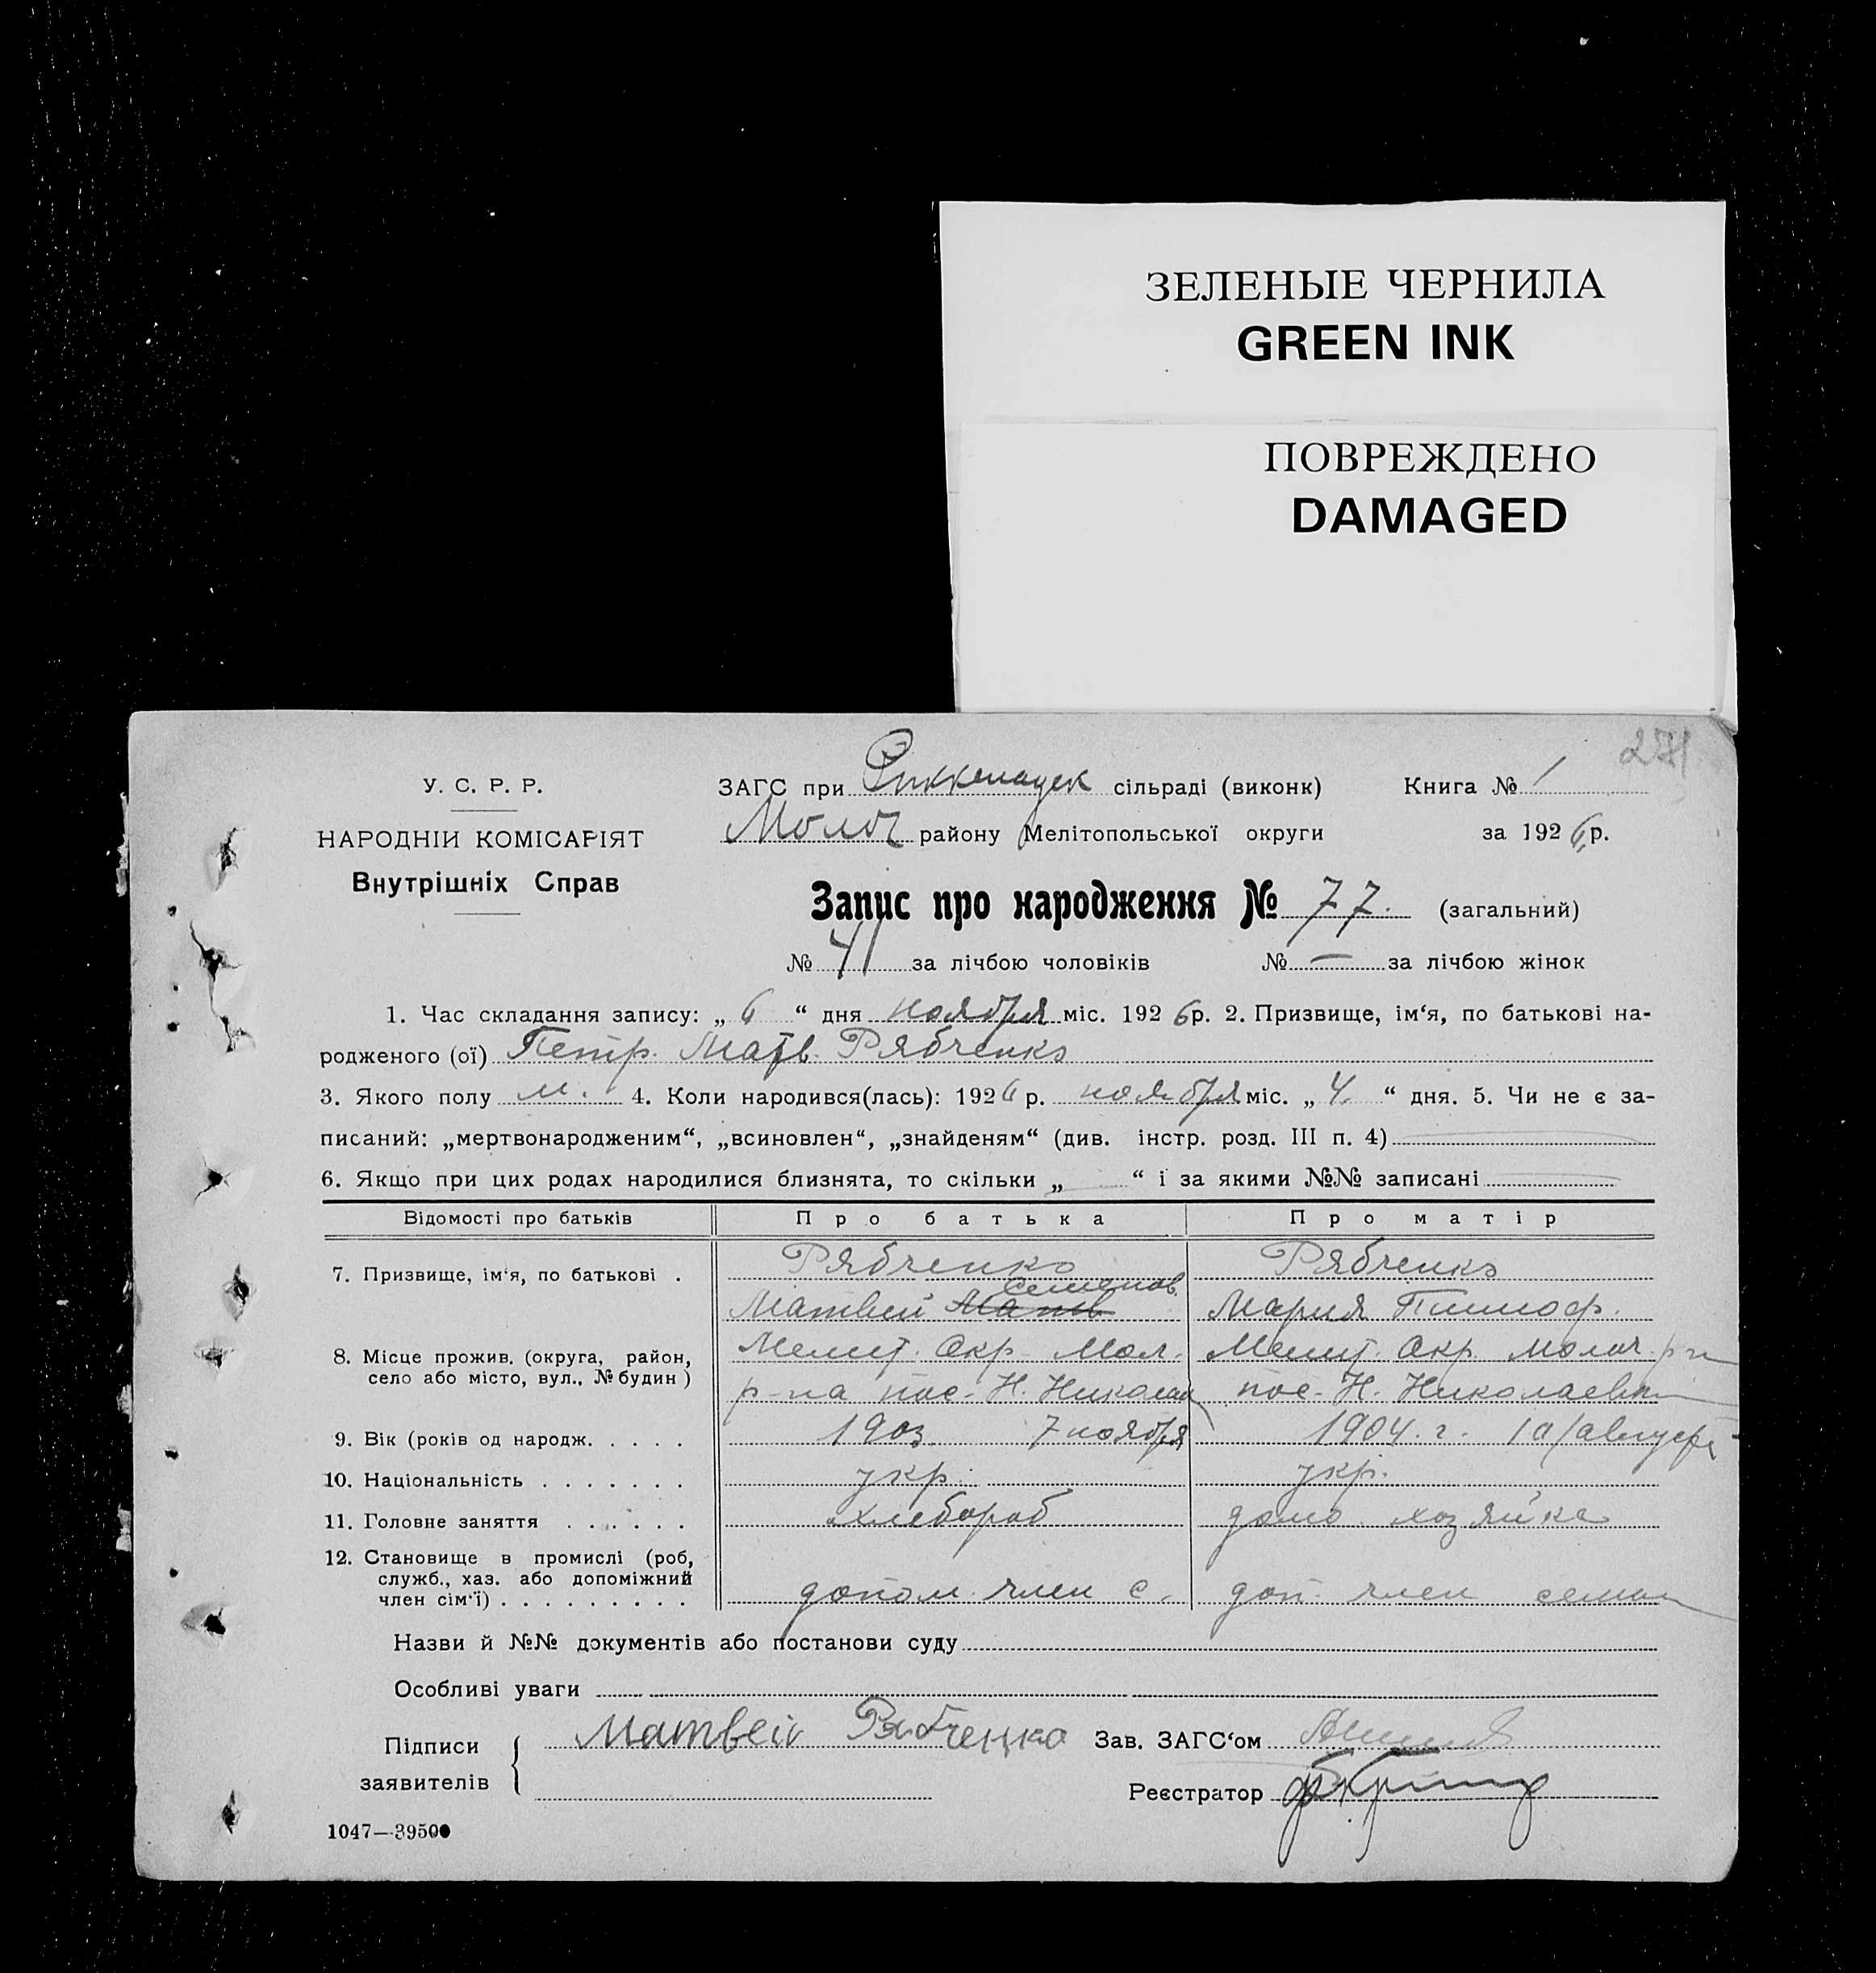 ЗЕЛЕНЫЕ ЧЕРНИЛА
GREEN INK
ПОВРЕЖДЕНО
DAMAGED
271
У. С. Р. Р.
НАРОДНІЙ КОМІСАРІЯТ
Внутрішніх Справ
ЗАГС при сільраді (виконк) Книга № 1
Молоч району Мелітопольської округи за 1926 р.
Запис про народження № 77. (загальний)
№ 41 за лічбою чоловіків № — за лічбою жінок
1. Час складання запису: „ 6 “ дня ноября міс. 1926 р. 2. Призвище, ім‘я, по батькові на-
родженого (ої) Петр. Матв. Рябченко
3. Якого полу м. 4. Коли народився(лась): 1926 р. ноября міс. „ 4. “ дня. 5. Чи не є за-
писаний: „мертвонародженим“, „всиновлен“, „знайденям“ (див. інстр. розд. III п. 4)
6. Якщо при цих родах народилися близнята, то скільки „ “ і за якими №№ записані
Відомості про батьків Про батька Про матір
7. Призвище, ім‘я, по батькові . Рябченко Рябченко
Семенов.
Матвей Матв Мария Тимоф.
8. Місце прожив. (округа, район, Мелит. Окр. Мол. Мелит. Окр. Молоч. р-н
село або місто, вул., № будин) р-на пос. Н. Николаев пос. Н. Николаевка
9. Вік (років од народж. . . . . 1903 7 ноября 1904. г. августа
10. Національність . . . . . . . укр. укр.
11. Головне заняття . . . . . . хлебороб домо хозяйка
12. Становище в промислі (роб,
служб., хаз. або допоміжний
член сім‘ї) . . . . . . . . . допом. член с. доп. член семьи
Назви й №№ документів або постанови суду
Особливі уваги
Підписи Матвей Рябченко Зав. ЗАГС‘ом
заявителів Реєстратор
1047—39500